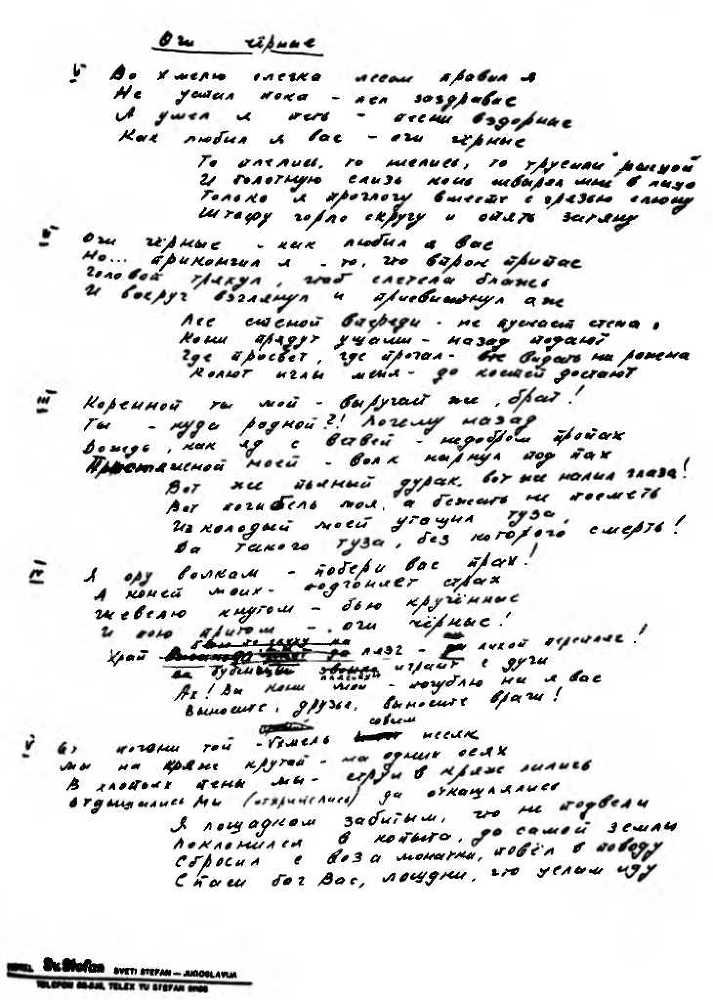 Очи чёрные
I Во хмелю слегка лесом правил я
Не устал пока - пел за здравие
А умел я петь - песни вздорные
Как любил я вас - очи чёрные
То плелись, то неслись, то трусили рысцой
И болотную слизь конь швырял мне в лицо
Только я проглочу вместе с грязью слюну
Штофу горло скручу и опять затяну
II Очи чёрные - как любил я вас
Но... прикончил я - то, что впрок припас
Головой тряхнул, чтоб слетела блажь
И вокруг взглянул и присвистнул аж
Лес стеной впереди - не пускает стена
Кони прядут ушами - назад подают
Где просвет, где прогал - не видать ни рожна
Колют иглы меня - до костей достают
III Коренной ты мой - выручай же, брат!
Ты - куда родной?! Почему назад
Дождь, как яд с ветвей - недобром пропах
Пристяжной моей - волк нырнул под пах
Вот же пьяный дурак, вот же налил глаза!
Вот погибель моя, а бежать не посметь
Из колоды моей утащил туза
Да такого туза, без которого смерть!
IV Я ору волкам - побери вас прах!
А коней моих - подгоняет страх
Шевелю кнутом - бью кручённые
И пою притом - очи чёрные!
Храп да лязг - да лихой перепляс!
бубенцы играют с дуги
Ах! Вы кони мои - погублю ли я вас
Выносите, друзья, выносите враги!
совсем
V От погани той - хмель иссяк
Мы на кряж крутой - на одних осях
В хлопьях пены мы - струи в кряж лились
Отдышались мы (отхрипелись) да откашлялись
Я лошадкам забитым, что не подвели
Поклонился в копыта, до самой земли
Сбросил с воза манатки, повёл в поводу
Спаси бог Вас, лошадки, что целым иду
HOTEL Sv. Stefan SVETI STEFAN — JUGOSLAVIJA